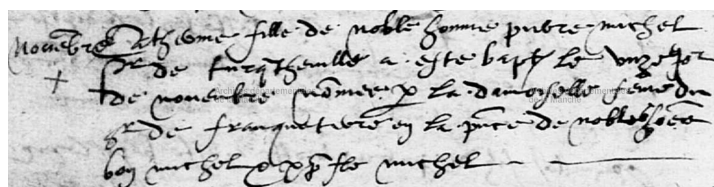 Novẽbre Catherine fille de noble homme pierre michel
sr de turqtheville a este bapt le unze jor
de novembre nõmee p la damoiselle fẽme du
sr de franquetere en la pñce de noble hoẽs
bon michel & xp̃ofle michel